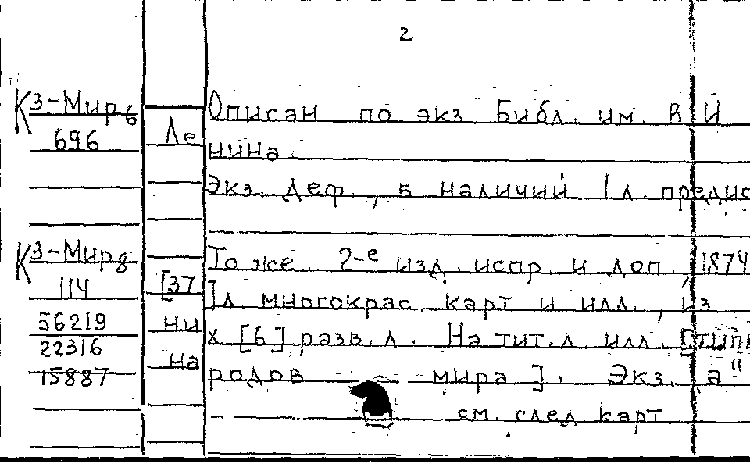 2
К3-Мир6 Описан по экз. Библ. им. В И
696 Ле
нина.
Экз. деф., в наличии 1 л. предис
К3-Мир8 То же. 2-е изд. испр. и доп., 1874
114 [37
]л. многокрас. карт и илл., из
56219 ни
х [6] разв. л. На тит. л. илл. [типы
22316 на
15887 родов мира]. Экз. "а"
см. след карт